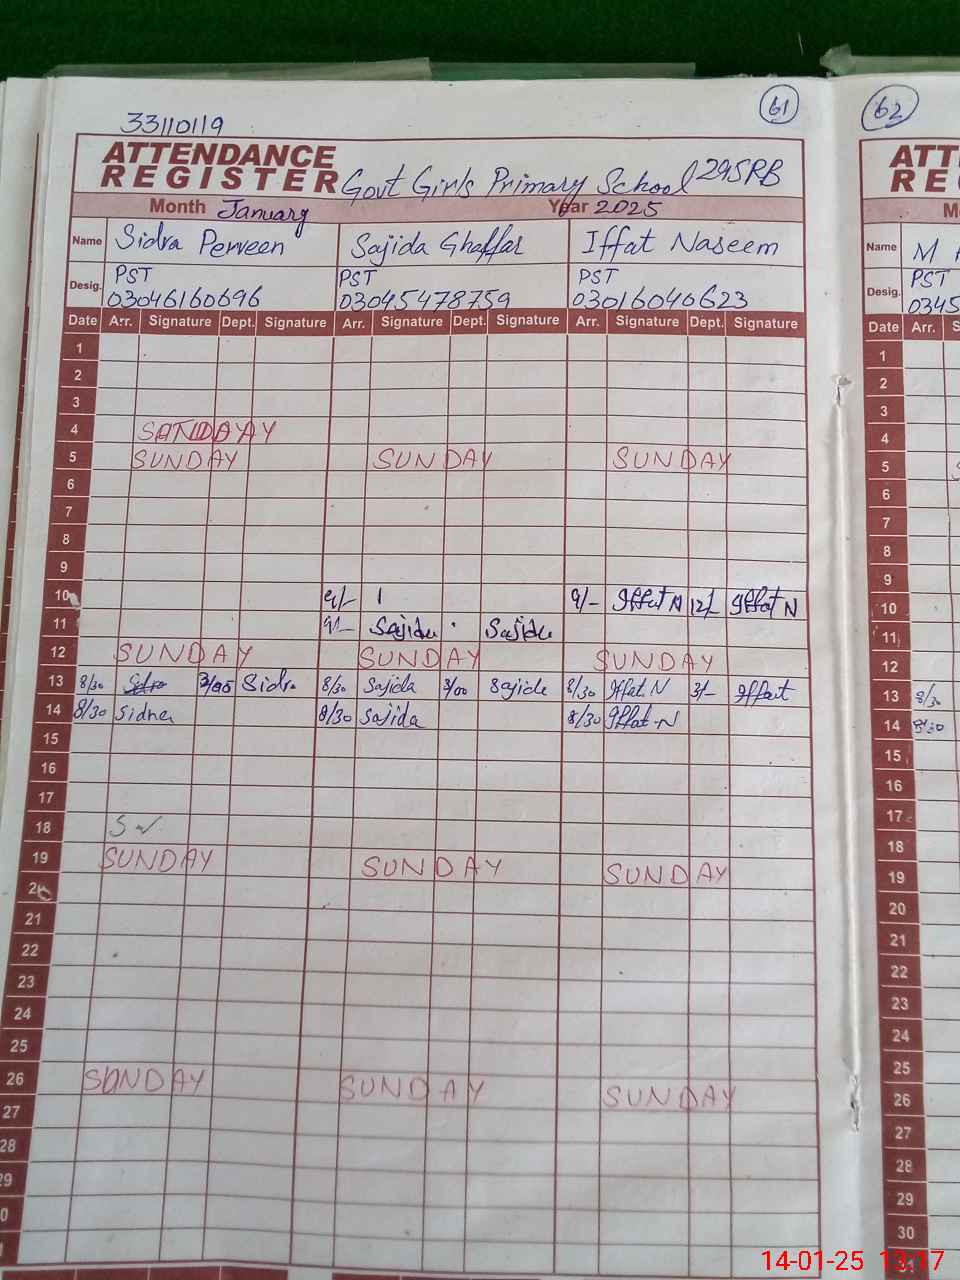 61
62
33110119
ATTENDANCE
REGISTER Govt Girls Primary School 295RB
Month January Year 2025
Name Sidra Perveen Sajida Ghaffar Iffat Naseem
Desig. PST PST PST
03046160696 03045478759 03016040623
Date Arr. Signature Dept. Signature Arr. Signature Dept. Signature Arr. Signature Dept. Signature
1
2
3
4
5 SUNDAY SUNDAY SUNDAY
6
7
8
9
10 9/- 9/- Iffat N 12/- Iffat N
11 9/- Sajida Sajida
12 SUNDAY SUNDAY SUNDAY
13 8/30 Sidra Sidra 8/30 Sajida 3/00 Sajida 8/30 Iffat N 3/- Iffat
14 8/30 Sidra 8/30 Sajida 8/30 Iffat-N
15
16
17
18
19 SUNDAY SUNDAY SUNDAY
21
22
23
24
25
26 SUNDAY SUNDAY SUNDAY
27
28
29
0
ATT
RE
M
Name M
Desig. PST
0345
Date Arr. S
1
2
3
4
5 S
6
7
8
9
10
11
12
13 8/30
14 8/30
15
16
17
18
19
20
21
22
23
24
25
26
27
28
29
30
14-01-25 13:17